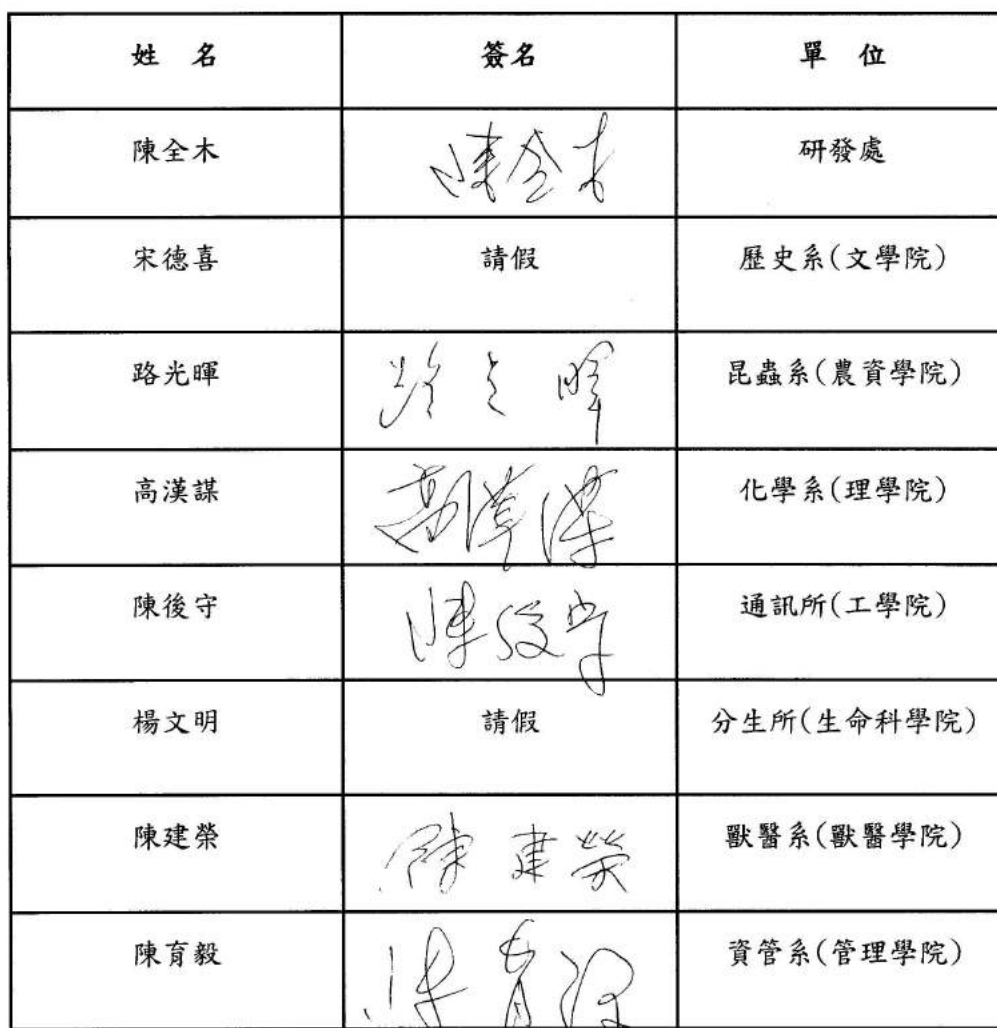 姓 名 簽名 單 位
陳全木 陳全木 研發處
宋德喜 請假 歷史系(文學院)
路光暉 路光暉 昆蟲系(農資學院)
高漢謀 高漢謀 化學系(理學院)
陳後守 陳後守 通訊所(工學院)
楊文明 請假 分生所(生命科學院)
陳建榮 陳建榮 獸醫系(獸醫學院)
陳育毅 陳育毅 資管系(管理學院)